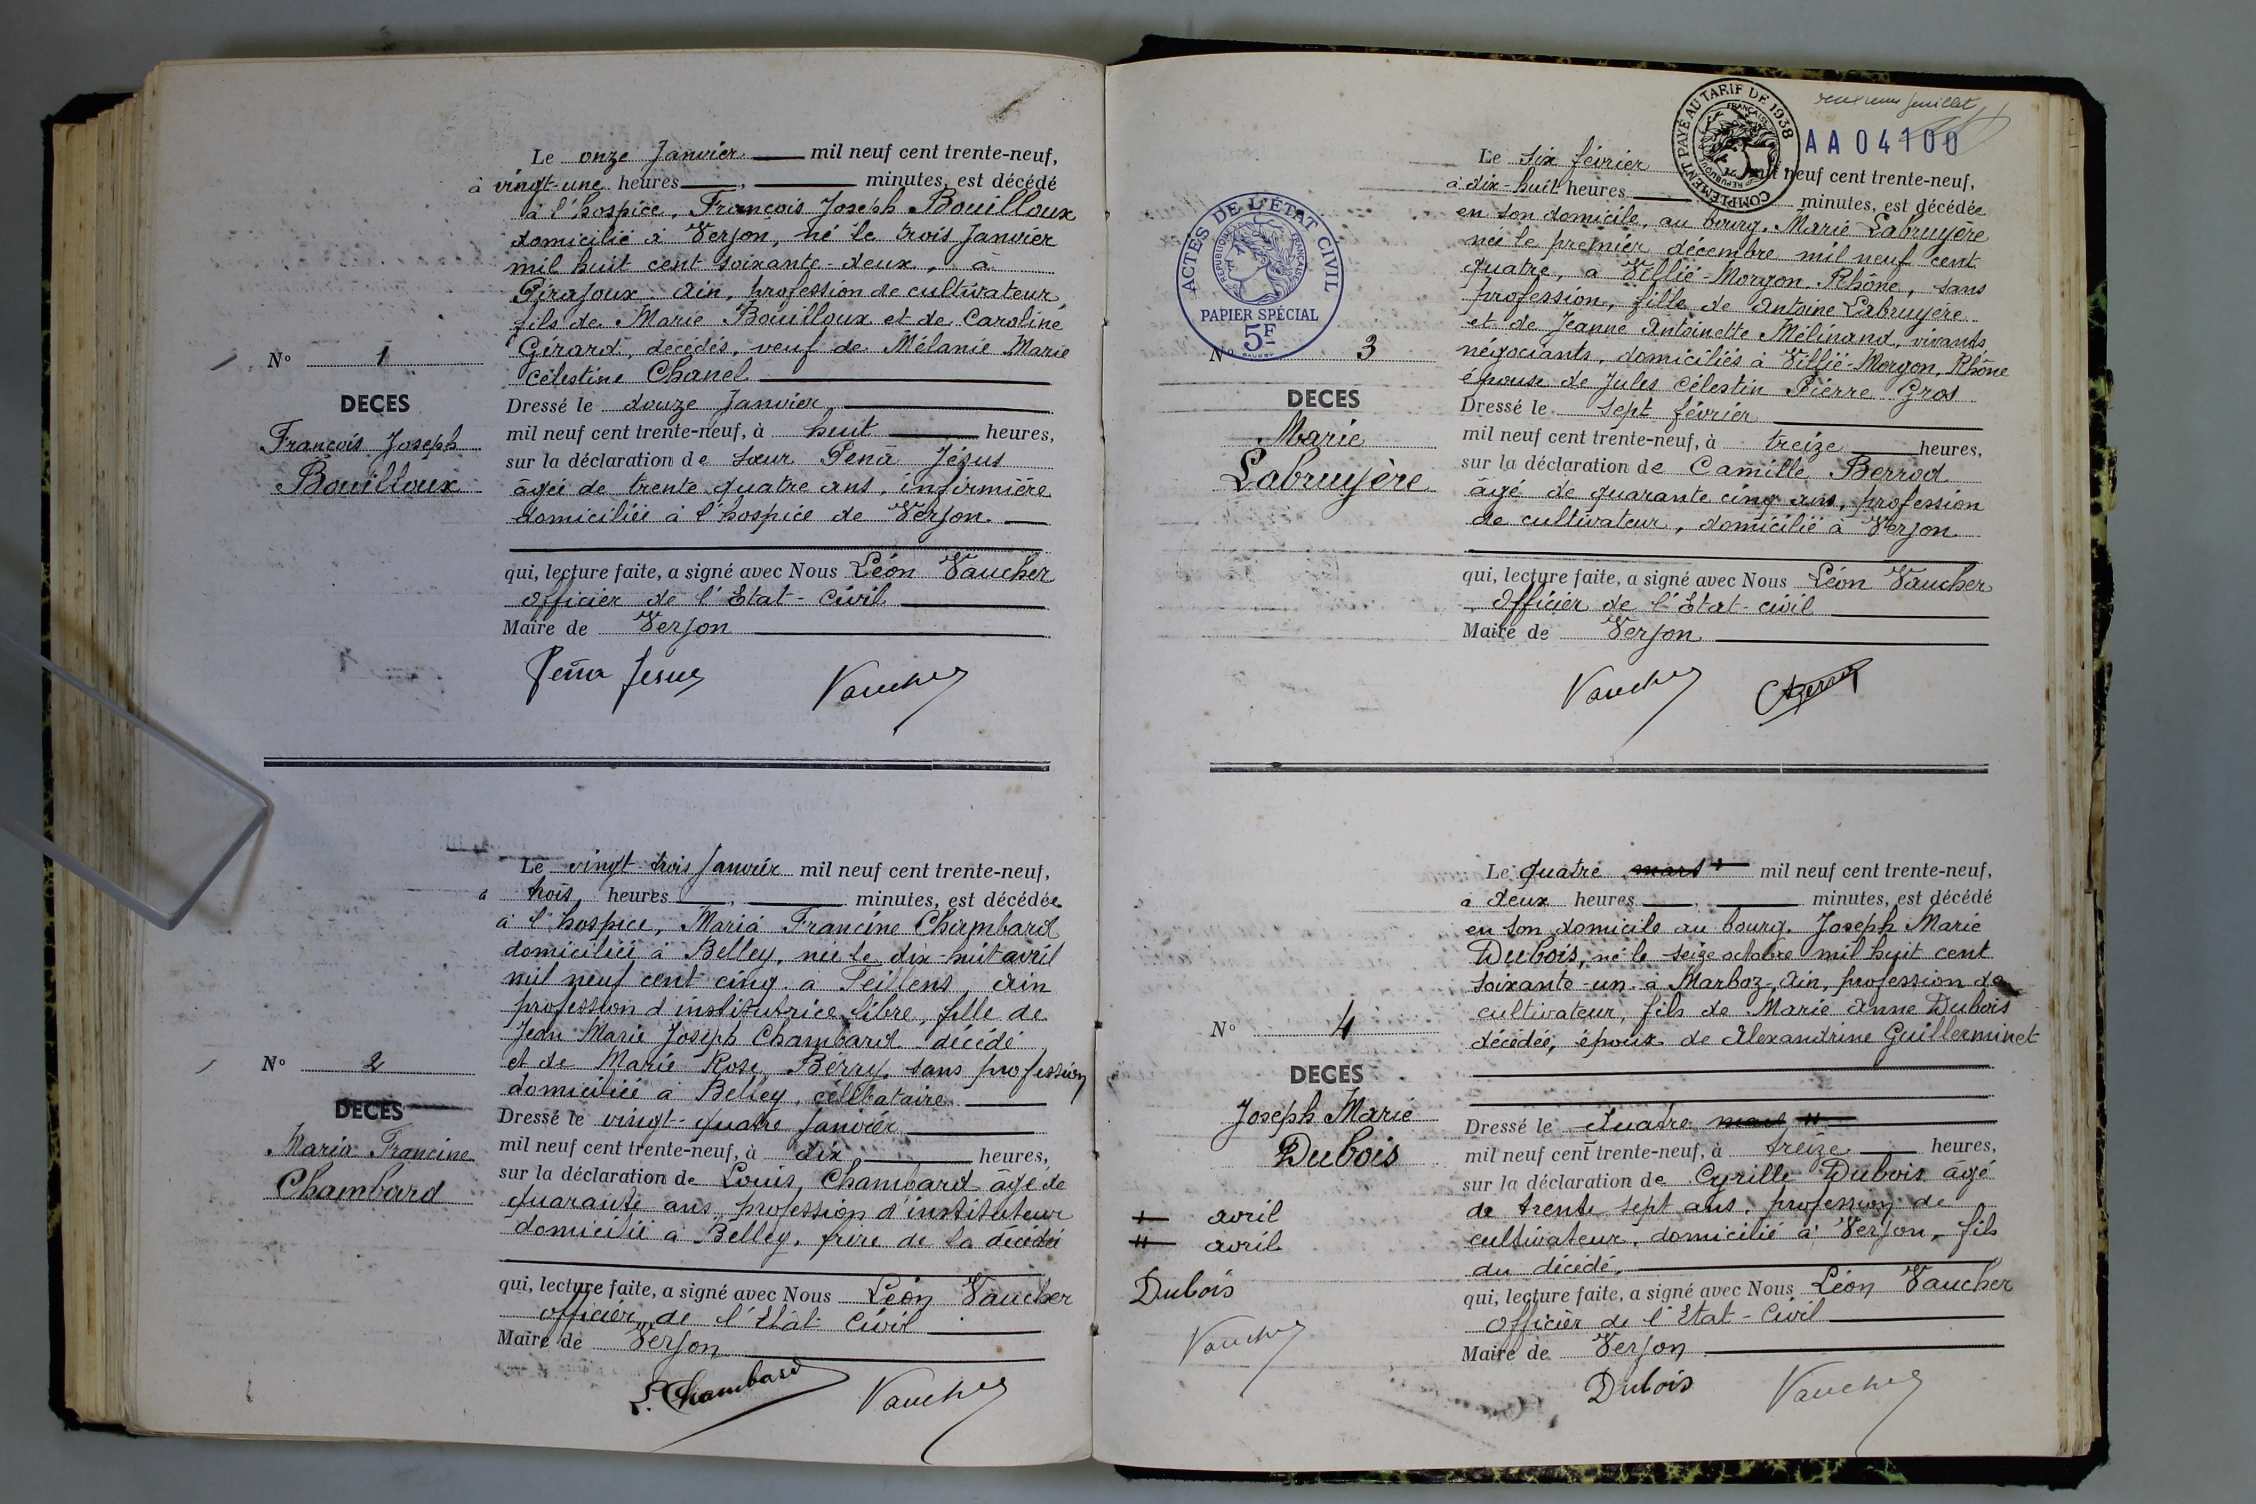 Le onze Janvier mil neuf cent trente-neuf,
à vingt-une heures, minutes, est décédé
à l'hospice, François Joseph Bouilloux
domicilié à Verjon, né le trois Janvier
mil huit cent soixante-deux, à
Pirajoux. Ain, profession de cultivateur,
fils de Marie Bouilloux et de Caroline
Gérard, décédés, veuf de Mélanie Marie
Célestine Chanel
N° 1
DECES
François Joseph
Bouilloux
Dressé le douze Janvier
mil neuf cent trente-neuf, à huit heures,
sur la déclaration de Sœur Pena Jésus
âgée de trente quatre ans, infirmière
domiciliée à l'hospice de Verjon.
qui, lecture faite, a signé avec Nous Léon Vaucher
Officier de l'Etat-Civil
Maire de Verjon
Peña Jesus Vaucher
Le vingt trois Janvier mil neuf cent trente-neuf,
à trois heures, minutes, est décédée
à l'hospice, Maria Francine Chambard
domiciliée à Belley, née le dix-huit avril
mil neuf cent cinq à Feillens, Ain
profession d'institutrice libre, fille de
Jean Marie Joseph Chambard décédé
et de Marie Rose Berry, sans profession
domiciliée à Belley, célibataire
N° 2
DECES
Maria Francine
Chambard
Dressé le vingt-quatre Janvier
mil neuf cent trente-neuf, à dix heures,
sur la déclaration de Louis Chambard âgé de
quarante ans, profession d'instituteur
domicilié à Belley, frère de la décédée
qui, lecture faite, a signé avec Nous Léon Vaucher
officier de l'Etat Civil
Maire de Verjon
L. Chambard Vaucher
feuillet
COMPLEMENT PAYÉ AU TARIF DE 1938
AA 04100
ACTES DE L'ÉTAT CIVIL
REPUBLIQUE FRANÇAISE
PAPIER SPÉCIAL
5F
Le six février mil neuf cent trente-neuf,
à dix-huit heures minutes, est décédée
en son domicile, au bourg, Marie Labruyère
née le premier décembre mil neuf cent
quatre, à Villié-Morgon, Rhône, sans
profession, fille de Antoine Labruyère
et de Jeanne Antoinette Mélinand, vivants
négociants, domiciliés à Villié-Morgon, Rhône
épouse de Jules Célestin Pierre Gros
N° 3
DECES
Marie
Labruyère
Dressé le sept février
mil neuf cent trente-neuf, à treize heures,
sur la déclaration de Camille Berrod
âgé de quarante cinq ans, profession
de cultivateur, domicilié à Verjon
qui, lecture faite, a signé avec Nous Léon Vaucher
Officier de l'Etat-civil
Maire de Verjon
Vaucher
Le quatre mars + mil neuf cent trente-neuf,
à deux heures, minutes, est décédé
en son domicile au bourg, Joseph Marie
Dubois, né le seize octobre mil huit cent
soixante-un à Marboz, Ain, profession de
cultivateur, fils de Marie Anne Dubois
décédée, époux de Alexandrine Guillerminet
N° 4
DECES
Joseph Marie
Dubois
Dressé le quatre mars ++
mil neuf cent trente-neuf, à treize heures,
sur la déclaration de Cyrille Dubois âgé
de trente sept ans, profession de
cultivateur, domicilié à Verjon, fils
du décédé.
qui, lecture faite, a signé avec Nous Léon Vaucher
Officier de l'Etat-Civil
Maire de Verjon
Dubois Vaucher
+ avril
++ avril
Dubois
Vaucher